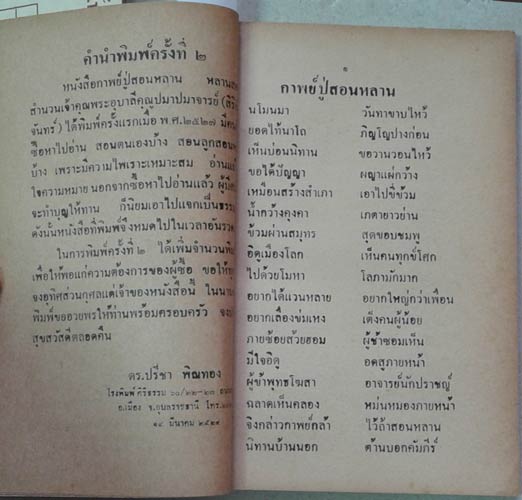 คำนำพิมพ์ครั้งที่ ๒
หนังสือกาพย์ปู่สอนหลาน
สำนวนเจ้าคุณพระอุบาลีคุณูปมาปมาจารย์ (สิริ
จันทร์) ได้พิมพ์ครั้งแรกเมื่อ พ.ศ.๒๕๒๗
ซื้อหาไปอ่าน สอนตนเองบ้าง สอนลูกสอน
บ้าง เพราะมีความไพเราะเหมาะสม
ใจความหมาย นอกจากซื้อหาไปอ่านแล้ว
จะทำบุญให้ทาน ก็นิยมเอาไปแจกเป็น
ดังนั้นหนังสือที่พิมพ์จึงหมดไปในเวลาอัน
ในการพิมพ์ครั้งที่ ๒ ได้เพิ่มจำนวน
เพื่อให้พอแก่ความต้องการของผู้ซื้อ
จงอุทิศส่วนกุศลแด่เจ้าของหนังสือนี้
พิมพ์ขออวยพรให้ท่านพร้อมครอบครัว
สุขสวัสดิ์ตลอดคืน
ดร.ปรีชา พิณทอง
โรงพิมพ์ศิริธรรม
อ.เมือง จ.อุบลราชธานี โทร.
๑๔ มีนาคม
กาพย์ปู่สอนหลาน
นโมนมา วันทาขาบไหว้
ยอดไท้นาโถ ภิญโญปางก่อน
เห็นบ่อนนิทาน ขอวานวอนไหว้
ขอได้ปัญญา ผญาแผ่กว้าง
เหมือนสร้างสำเภา เอาไปขี่ข้วม
น้ำกว้างคุงคา เภตายาวย่าน
ข้วมผ่านสมุทร สุดขอบชมพู
อิดูเมืองโลก เห็นคนทุกข์โศก
ไปด้วยโมหา โลภามักมาก
อยากได้แวนหลาย อยากใหญ่กว่าเพื่อน
อยากเลื่องข่มเหง เต็งคนผู้น้อย
ภายซ้อยส้วยฮอม ผู้ช้ำซอมเห็น
มีใจอิดู อดสูภายหน้า
ผู้ข้าพุทธโฆสา อาจารย์นักปราชญ์
ฉลาดเห็นคลอง หม่นหมองภายหน้า
จิงกล่าวกาพย์กล้า ไว้ถ้าสอนหลาน
นิทานบ้านนอก ด้านบอกคัมภีร์